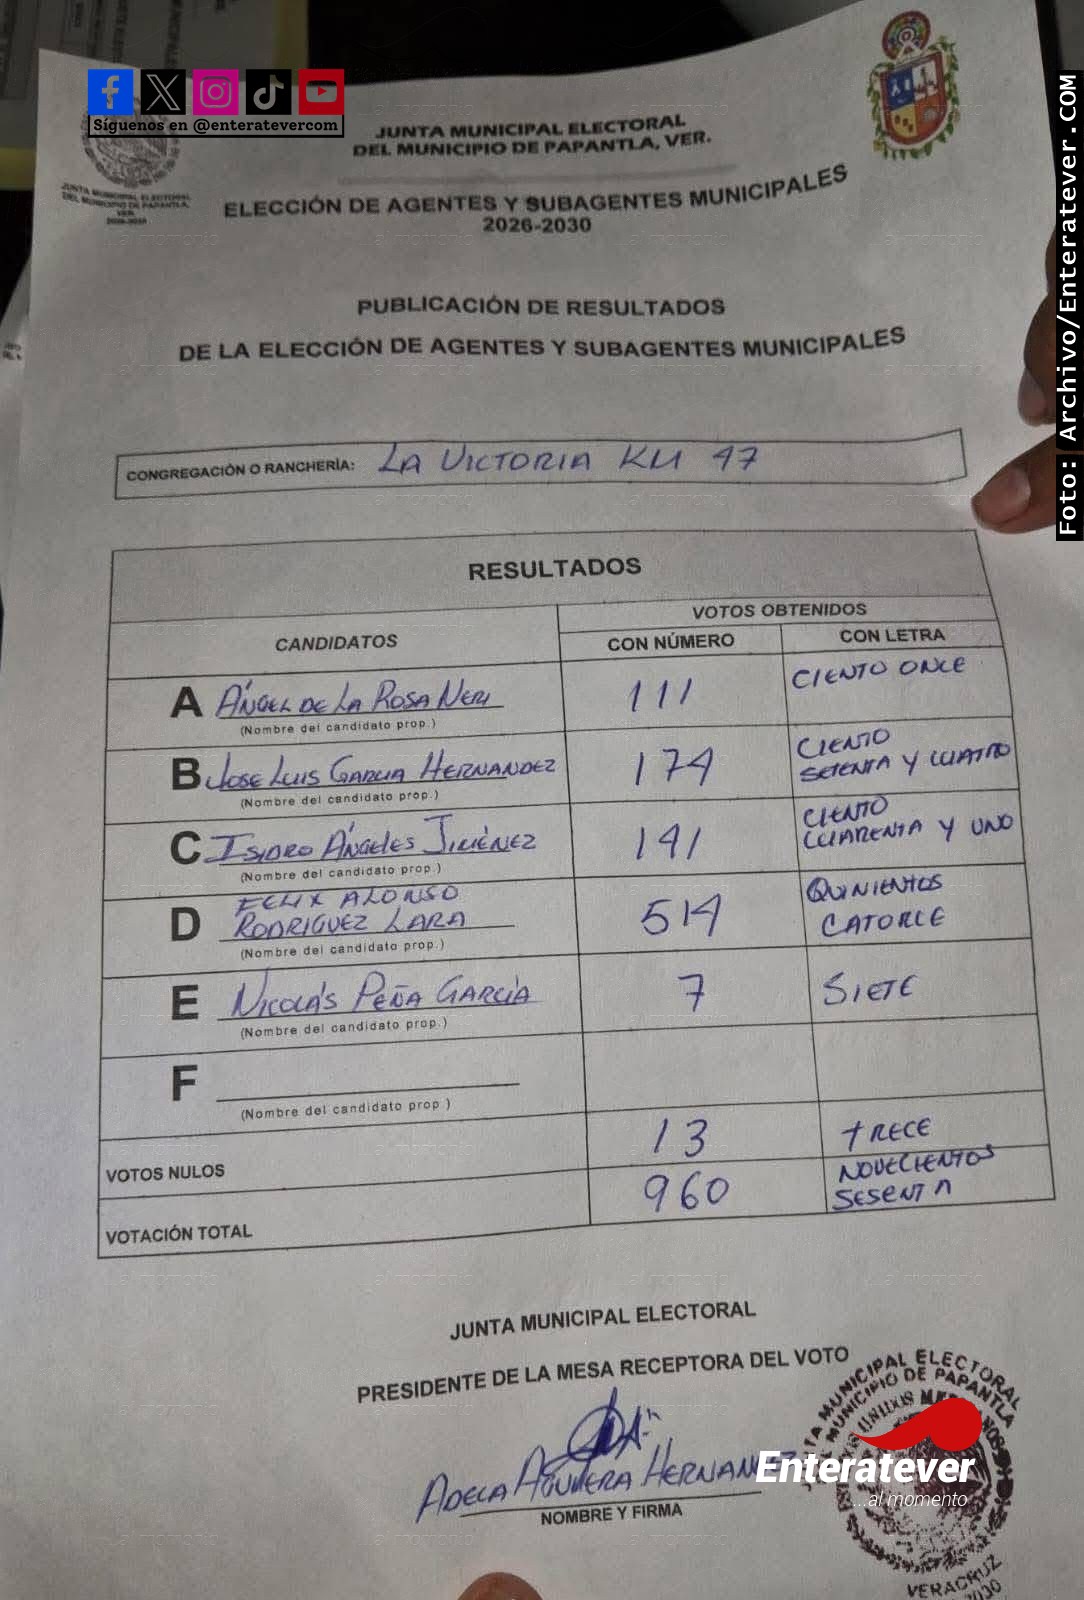 Síguenos en @enteratevercom
JUNTA MUNICIPAL ELECTORAL
DEL MUNICIPIO DE PAPANTLA, VER.
JUNTA MUNICIPAL ELECTORAL
DEL MUNICIPIO DE PAPANTLA,
VER.
ELECCIÓN DE AGENTES Y SUBAGENTES MUNICIPALES
2026-2030
PUBLICACIÓN DE RESULTADOS
DE LA ELECCIÓN DE AGENTES Y SUBAGENTES MUNICIPALES
CONGREGACIÓN O RANCHERÍA: LA VICTORIA KM 47
RESULTADOS
CANDIDATOS
VOTOS OBTENIDOS
CON NÚMERO CON LETRA
A ÁNGEL DE LA ROSA NERI 111 CIENTO ONCE
(Nombre del candidato prop.)
B JOSE LUIS GARCIA HERNANDEZ 174 CIENTO
SETENTA Y CUATRO
(Nombre del candidato prop.)
C ISIDRO ÁNGELES JIMÉNEZ 141 CIENTO
CUARENTA Y UNO
(Nombre del candidato prop.)
D FELIX ALONSO
RODRIGUEZ LARA 514 QUINIENTOS
CATORCE
(Nombre del candidato prop.)
E NICOLÁS PEÑA GARCÍA 7 SIETE
(Nombre del candidato prop.)
F
(Nombre del candidato prop.)
VOTOS NULOS 13 TRECE
VOTACIÓN TOTAL 960 NOVECIENTOS
SESENTA
JUNTA MUNICIPAL ELECTORAL
PRESIDENTE DE LA MESA RECEPTORA DEL VOTO
NOMBRE Y FIRMA
MUNICIPAL ELECTORAL
MUNICIPIO DE PAPANTLA
UNIDOS
VERACRUZ
Enteratever
...al momento
Foto: Archivo/Enteratever.COM